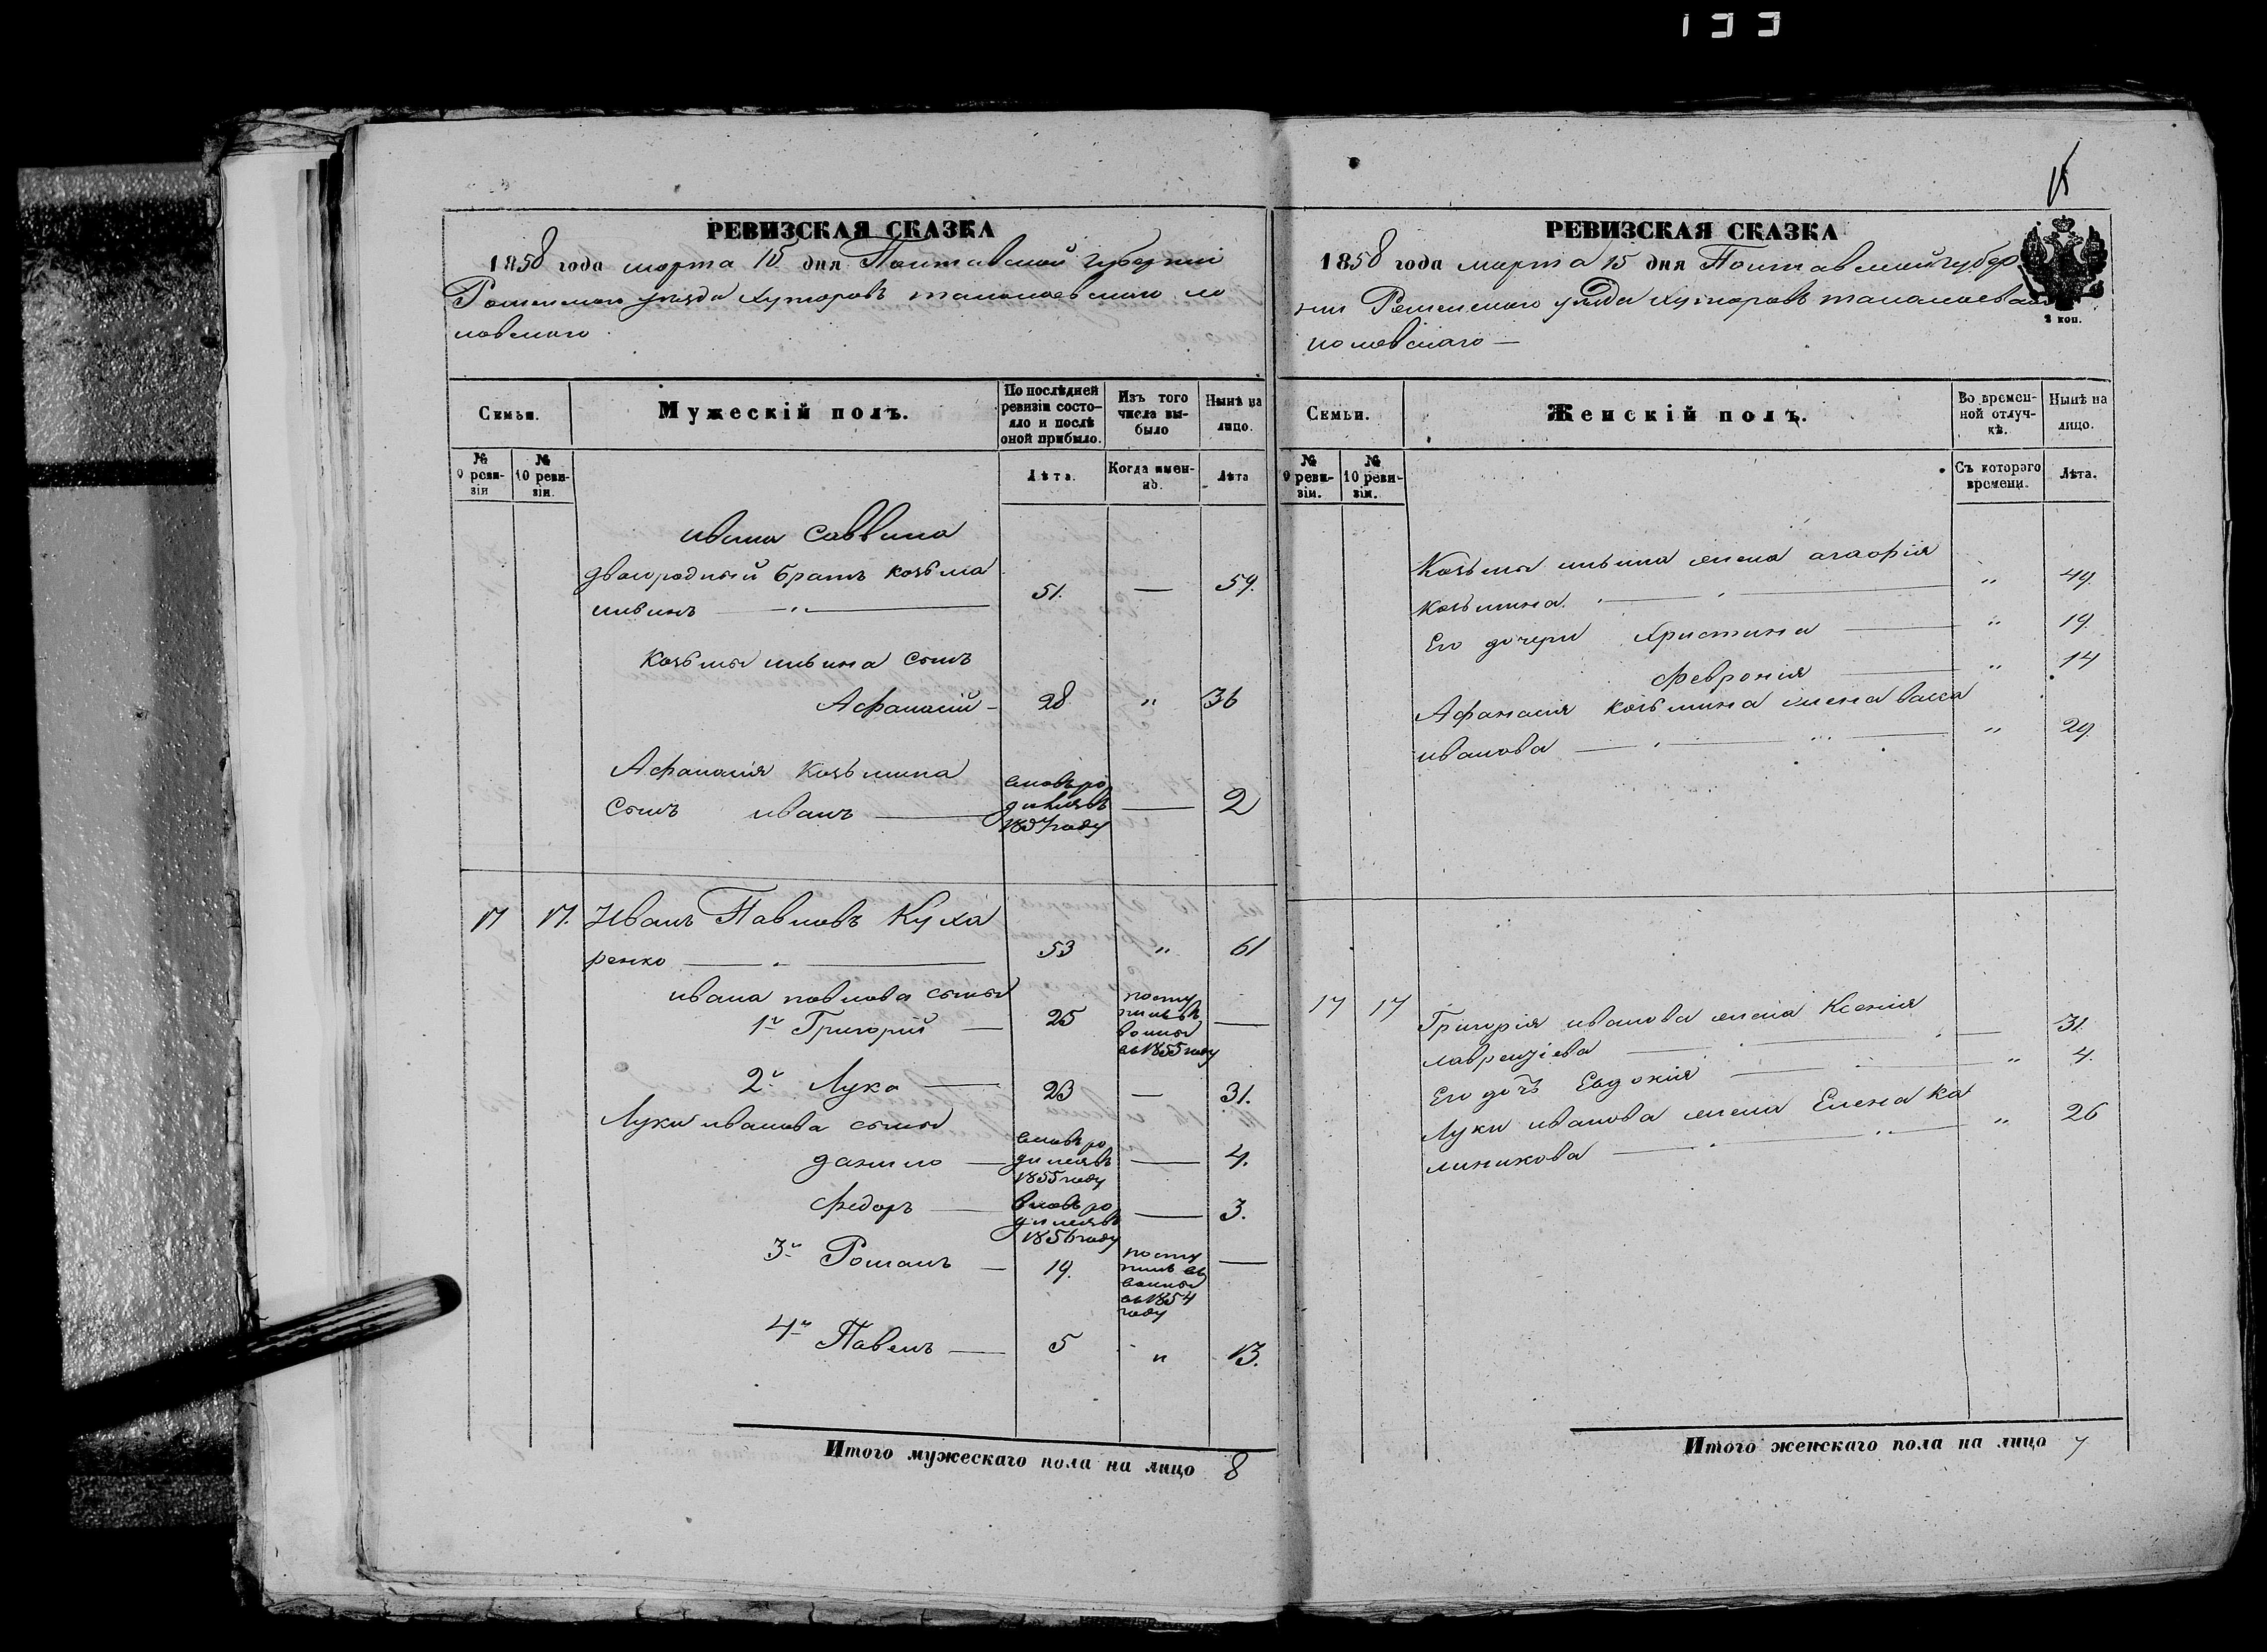 133
РЕВИЗСКАЯ СКАЗКА
1858 года марта 15 дня Полтавской губерніи
Роменскаго уезда хуторовъ
РЕВИЗСКАЯ СКАЗКА
1858 года марта 15 дня Полтавской губер
ніи Роменскаго уезда хуторовъ
2 коп.
Семьи.
Мужескій полъ.
По послѣдней ревизіи состояло и послѣ оной прибыло.
Изъ того числа выбыло
Нынѣ на лицо.
№ 9 ревизіи
№ 10 ревизіи.
Лѣта.
Когда именно.
Лѣта
ивана Саввина
двоюродный братъ козьма
ильинъ 51. — 59.
Козьмы ильина сынъ
Афанасій 28 " 36
Афанасія Козьмина
сынъ иванъ вновь родился въ 1857 году — 2
17 17. Иванъ Павловъ Куха
ренко 53 " 61
ивана павлова сыны
1й Григорій — 25 поступилъ въ воины въ 1855 году —
2й Лука — 23 — 31.
Луки иванова сыны
данило — вновь родился въ 1855 году — 4.
федоръ — вновь родился въ 1856 году — 3.
3й Романъ — 19. поступилъ въ воины въ 1854 году —
4й Павелъ — 5 " 13.
Итого мужескаго пола на лицо 8
Семьи.
Женскій полъ.
Во временной отлучкѣ.
Нынѣ на лицо.
№ 9 ревизіи.
№ 10 ревизіи.
Съ котораго времени.
Лѣта.
Козьмы ильина жена агафія
козьмина " 49.
Его дочери Христина — " 19
феврония — " 14
Афанасія козьмина жена васса
иванова — " 29
17 17 Григорія иванова жена Ксенія
лаврентіева — 31.
Его дочь Евдокія — " 4.
Луки иванова жена Елена ка
линикова — " 26
Итого женскаго пола на лицо 7